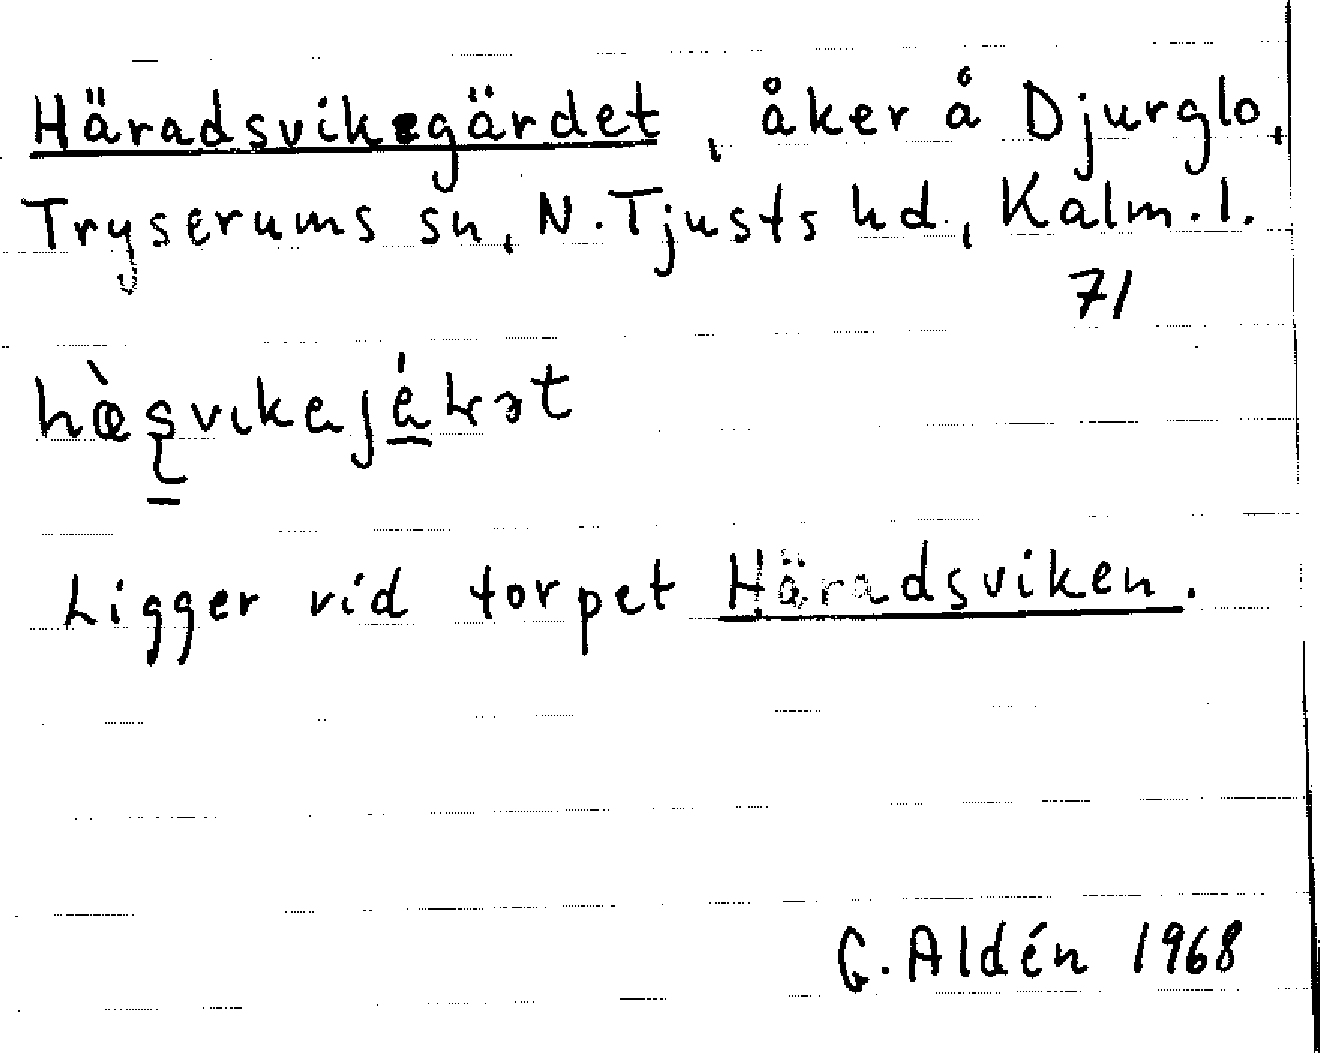 Häradsvikegärdet, åker å Djurglo,
Tryserums sn, N. Tjusts hd., Kalm. l.
71
Ligger vid torpet Häradsviken.
G. Aldén 1968